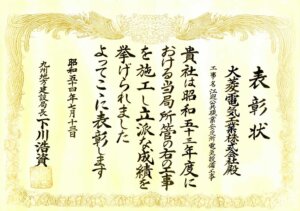 表彰状
大菱電気工業株式会社殿
工事名 江迎公共職業安定所電気設備工事
貴社は昭和五十三年度に
おける当局所管の右の工事
を施工し立派な成績を
挙げられました
よってここに表彰します
昭和五十四年七月十三日
九州地方建設局長 下川浩資